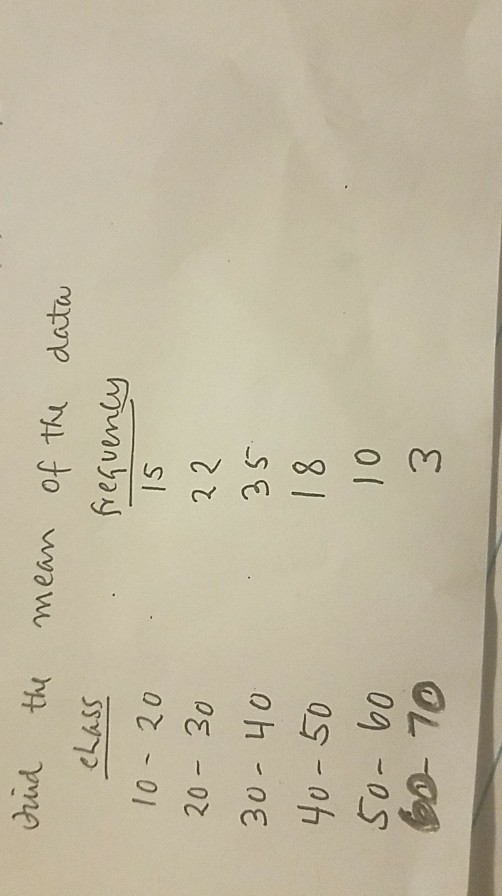 Find the mean of the data
class frequency
10 - 20 15
20 - 30 22
30 - 40 35
40 - 50 18
50 - 60 10
60 - 70 3